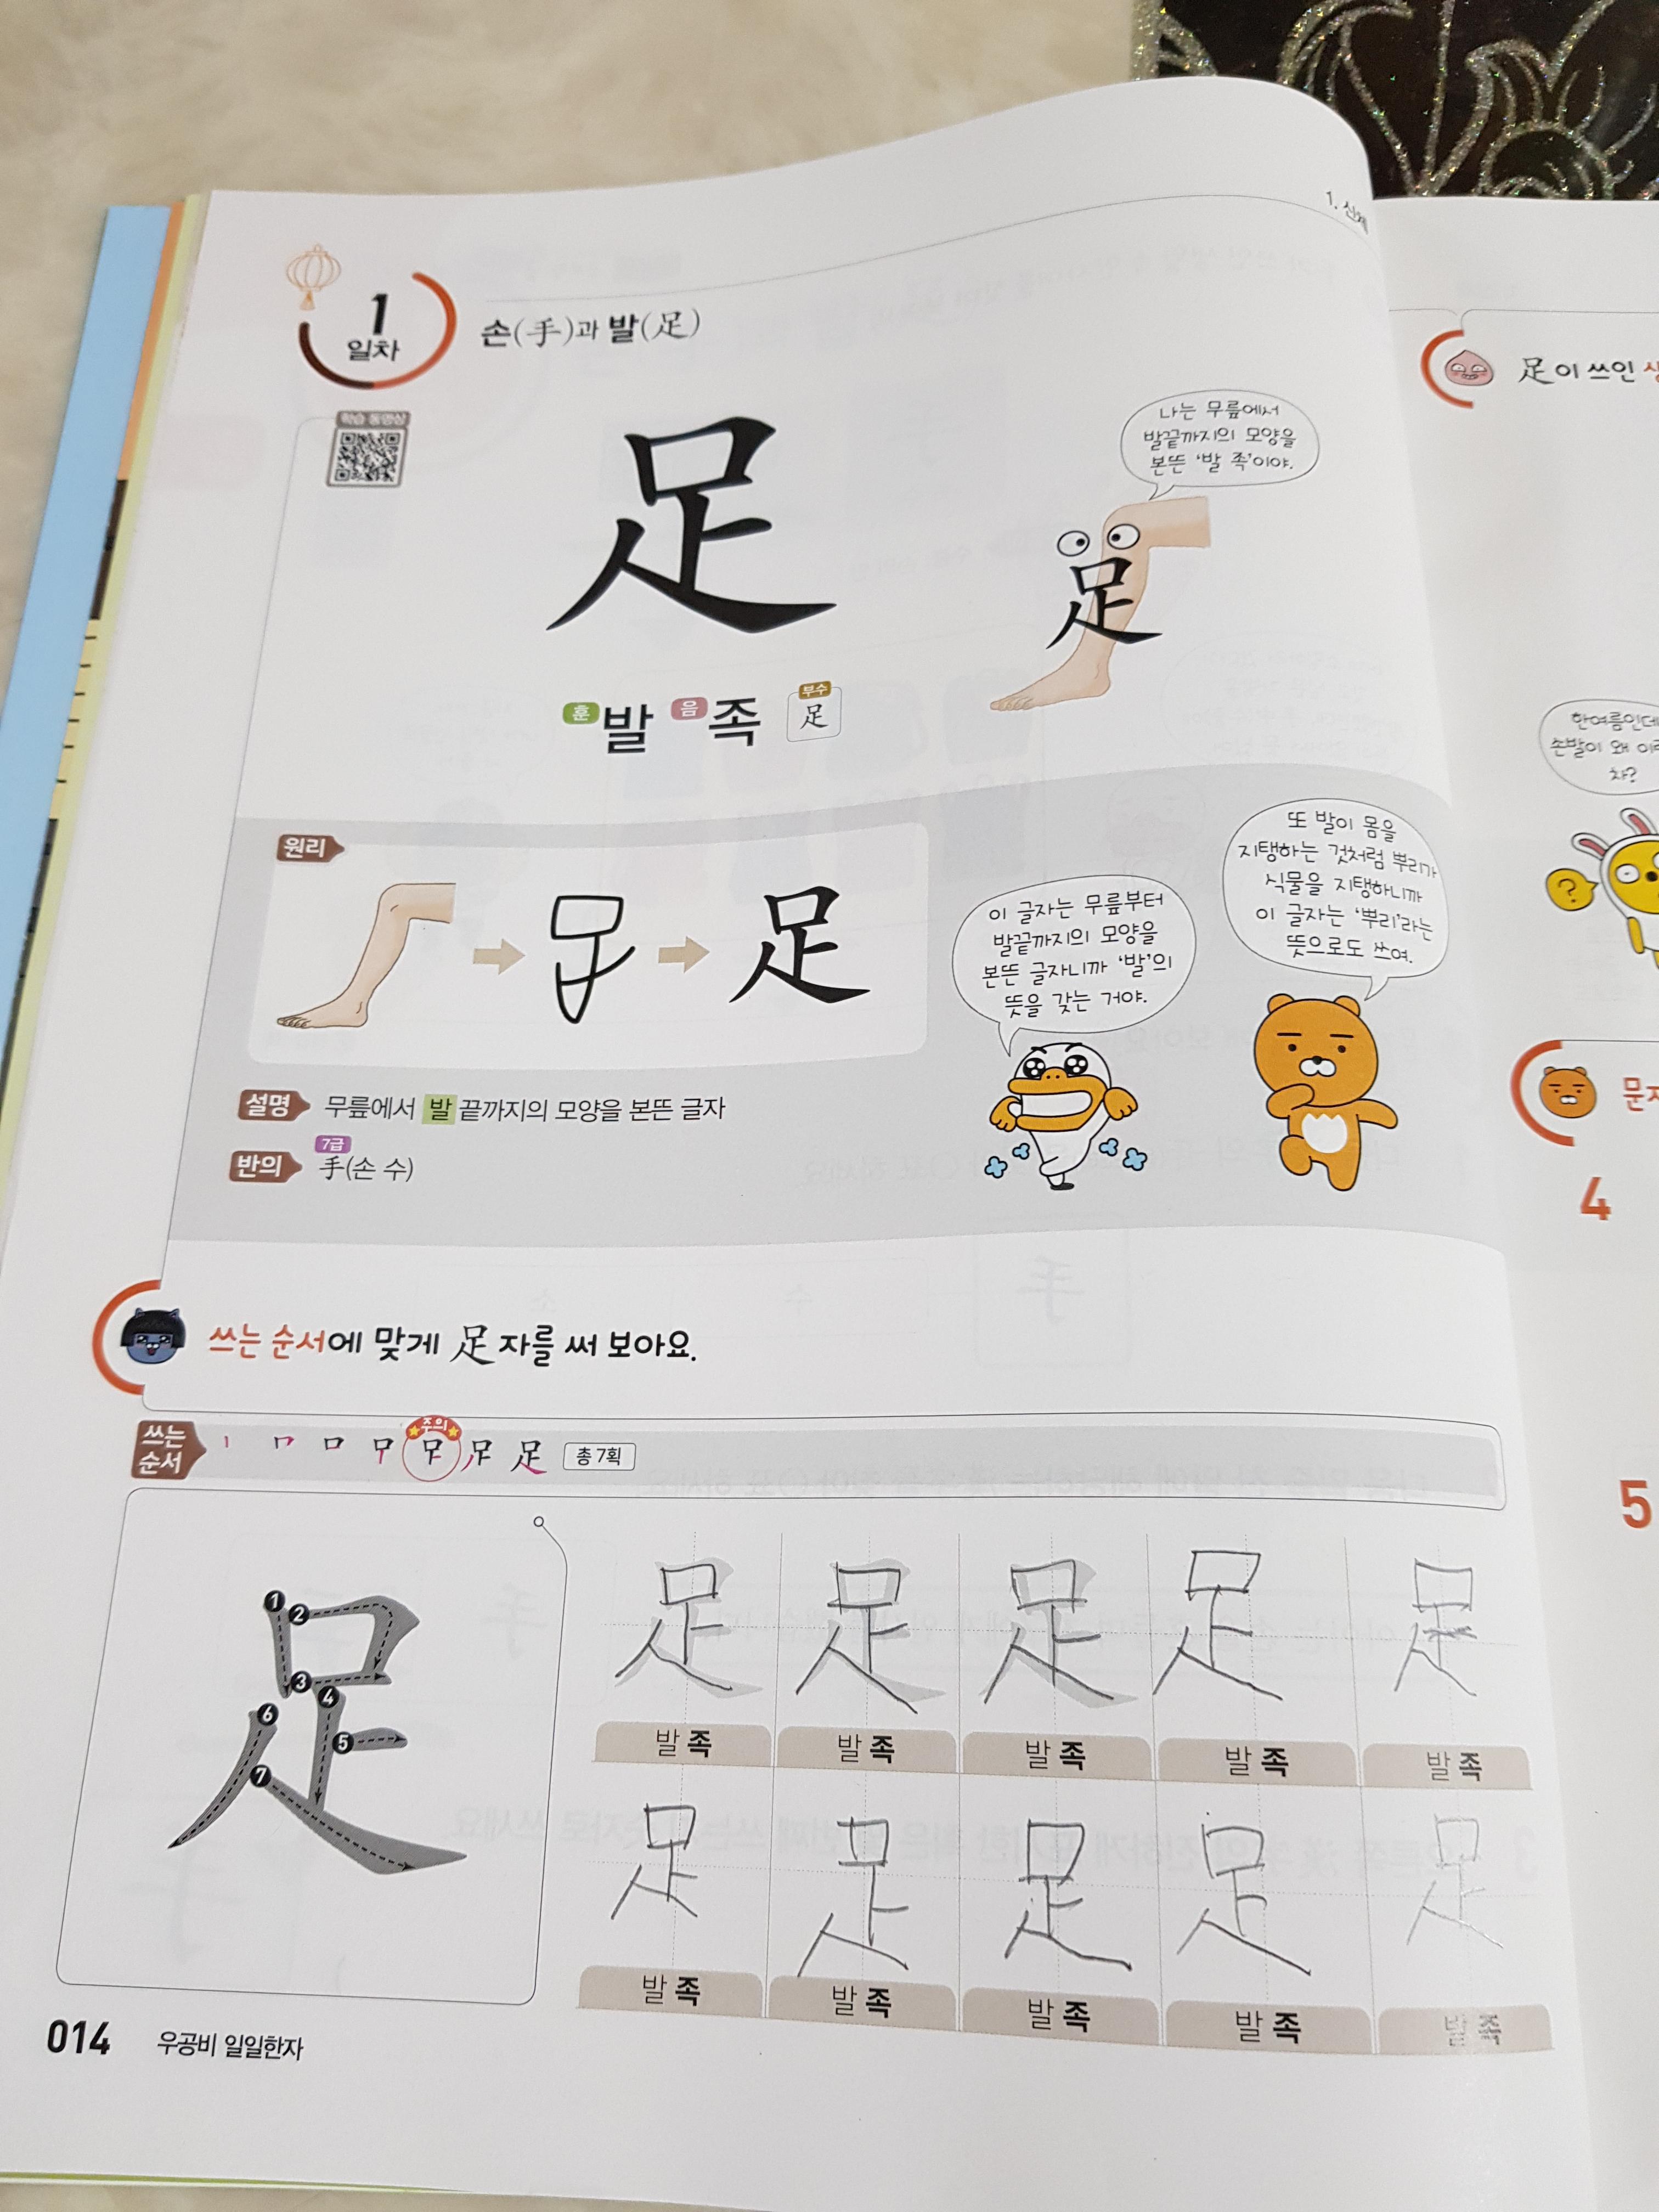 1. 신체
1
일차
손(手)과 발(足)
학습 동영상
足
나는 무릎에서
발끝까지의 모양을
본뜬 '발 족'이야.
足
훈 발 음 족 부수 足
원리
足
이 글자는 무릎부터
발끝까지의 모양을
본뜬 글자니까 '발'의
뜻을 갖는 거야.
또 발이 몸을
지탱하는 것처럼 뿌리가
식물을 지탱하니까
이 글자는 '뿌리'라는
뜻으로도 쓰여.
설명 무릎에서 발 끝까지의 모양을 본뜬 글자
7급
반의 手(손 수)
쓰는 순서에 맞게 足 자를 써 보아요.
쓰는
순서
주의
足 총 7획
1 2 3 4 5 6 7
足 足 足 足 足
발 족 발 족 발 족 발 족 발 족
足 足 足 足 足
발 족 발 족 발 족 발 족 발 족
014 우공비 일일한자
足이 쓰인
한여름인데
손발이 왜
차?
?
4
5